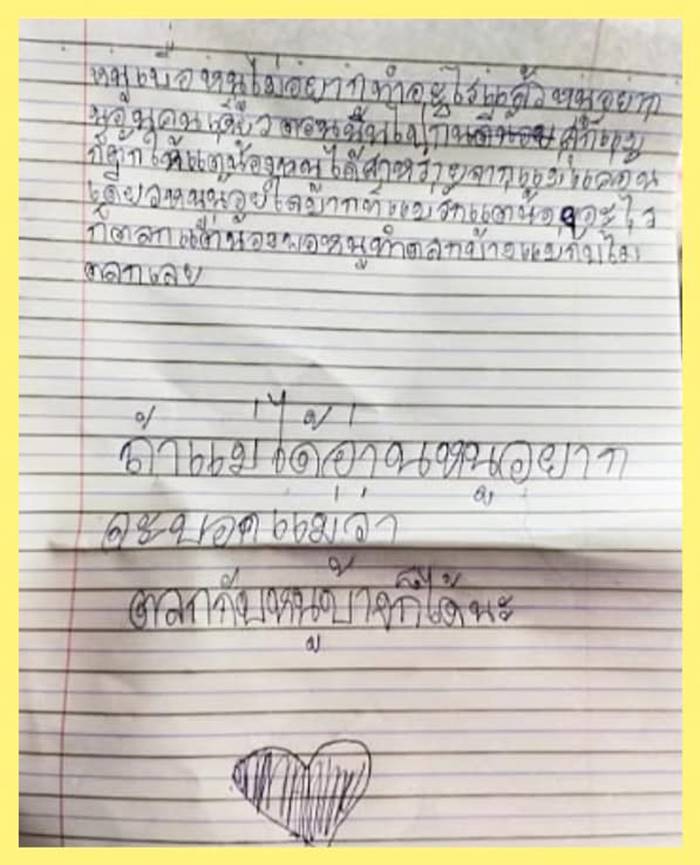 หนูเบื่อหนูไม่อยากทำอะไรแล้วหนูอยาก
นอนคนเดียวตอนนั้นไป
ก็ให้แต่น้องหนูได้สาหร่ายจากแม่แค่คน
เดียวหนูน้อยใจมากที่แม่รักแต่น้องอะไร
ก็ตลกแต่น้องพอหนูทำตลกบ้างแม่ก็ไม่
ตลกเลย
ถ้าแม่ได้อ่านหนูอยาก
จะบอกแม่ว่า
ตลกกับหนูบ้างก็ได้นะ